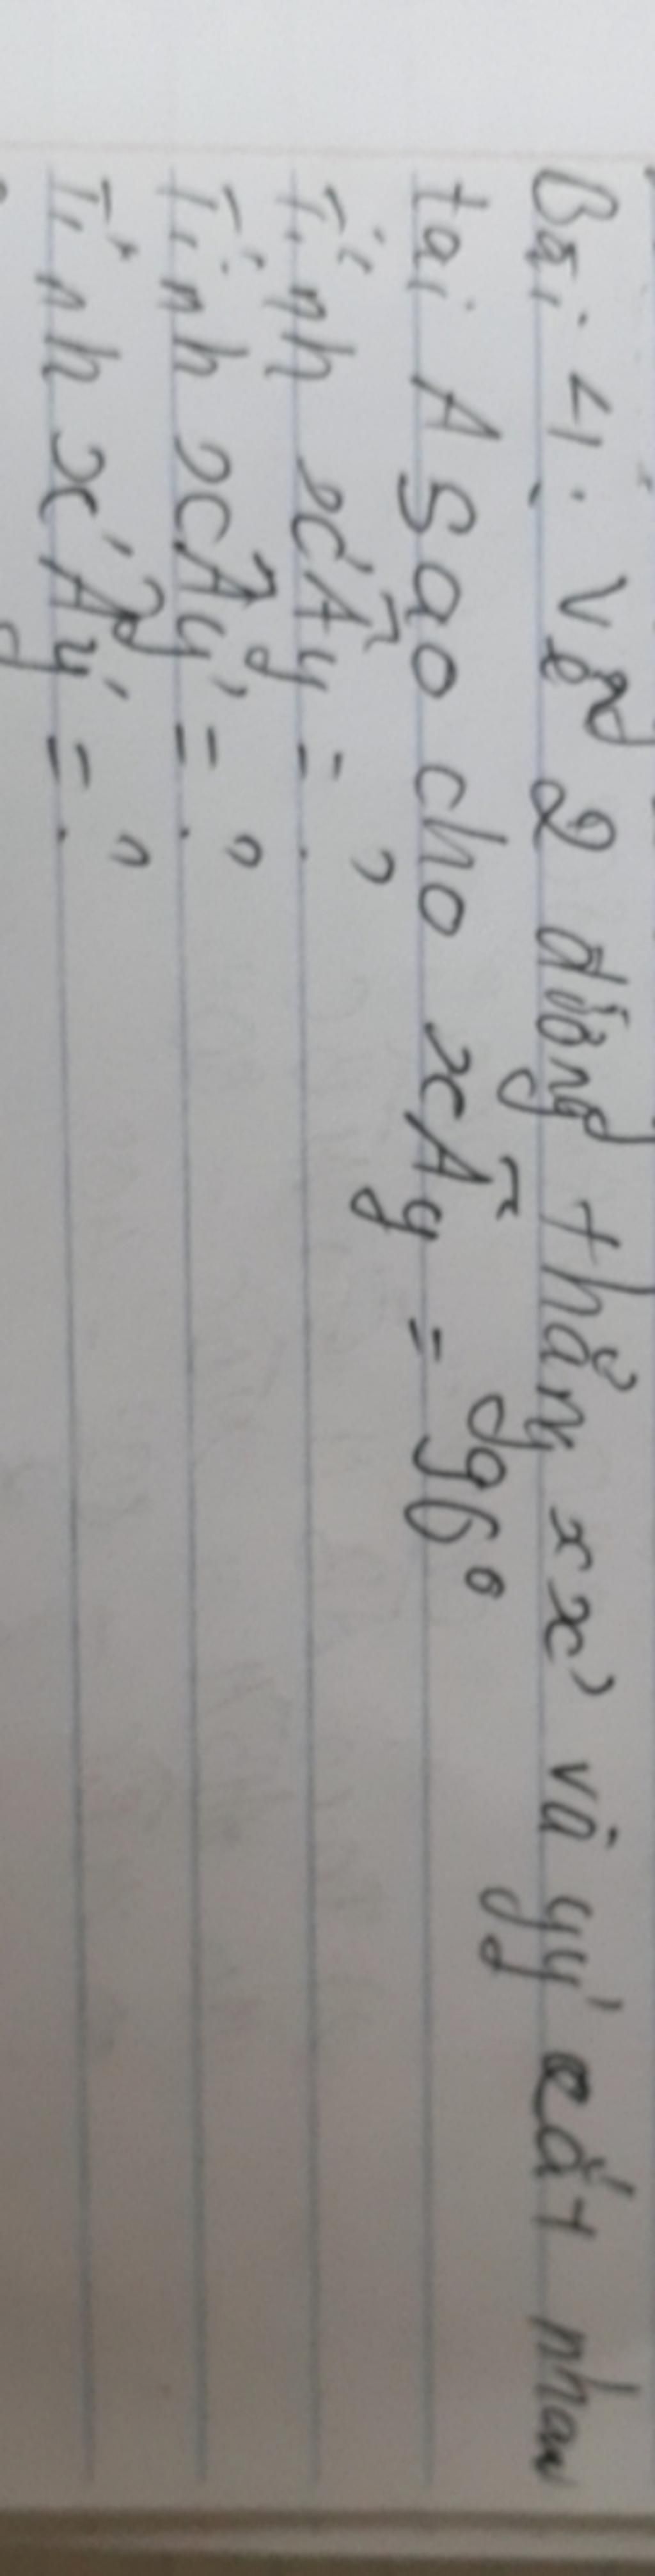 Bài 4: Vẽ 2 đường thẳng xx' và yy' cắt nhau
tại A sao cho xÂy = 96°
Tính x'Ây = ?
Tính xÂy' = ?
Tính x'Ây' = ?